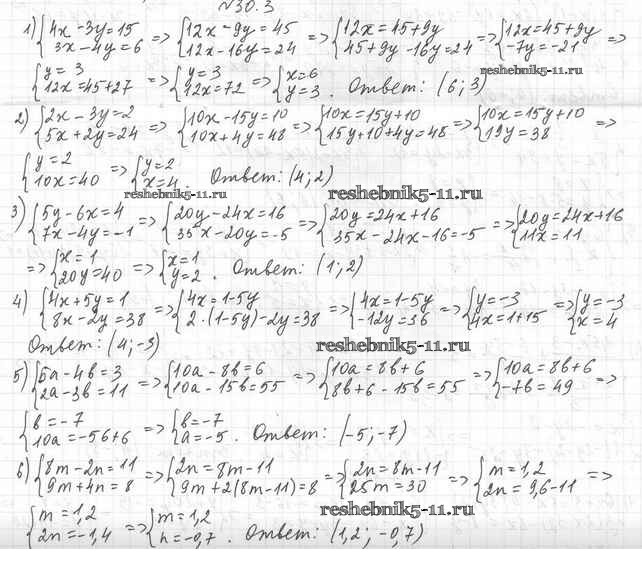 №30.3
1) {4x-3y=15 3x-4y=6 => {12x-9y=45 12x-16y=24 => {12x=45+9y 45+9y-16y=24 => {12x=45+9y -7y=-21 =>
reshebnik5-11.ru
{y=3 12x=45+27 => {y=3 12x=72 => {x=6 y=3. Ответ: (6;3)
2) {2x-3y=2 5x+2y=24 => {10x-15y=10 10x+4y=48 => {10x=15y+10 15y+10+4y=48 => {10x=15y+10 19y=38 =>
{y=2 10x=40 => {y=2 x=4. Ответ: (4;2)
reshebnik5-11.ru
reshebnik5-11.ru
3) {5y-6x=4 7x-4y=-1 => {20y-24x=16 35x-20y=-5 => {20y=24x+16 35x-24x-16=-5 => {20y=24x+16 11x=11
=> {x=1 20y=40 => {x=1 y=2. Ответ: (1;2)
4) {4x+5y=1 8x-2y=38 => {4x=1-5y 2·(1-5y)-2y=38 => {4x=1-5y -12y=36 => {y=-3 4x=1+15 => {y=-3 x=4
Ответ: (4;-3)
reshebnik5-11.ru
5) {5a-4b=3 2a-3b=11 => {10a-8b=6 10a-15b=55 => {10a=8b+6 8b+6-15b=55 => {10a=8b+6 -7b=49 =>
{b=-7 10a=-56+6 => {b=-7 a=-5. Ответ: (-5;-7)
6) {8m-2n=11 9m+4n=8 => {2n=8m-11 9m+2(8m-11)=8 => {2n=8m-11 25m=30 => {m=1,2 2n=9,6-11 =>
reshebnik5-11.ru
{m=1,2 2n=-1,4 => {m=1,2 n=-0,7. Ответ: (1,2; -0,7)